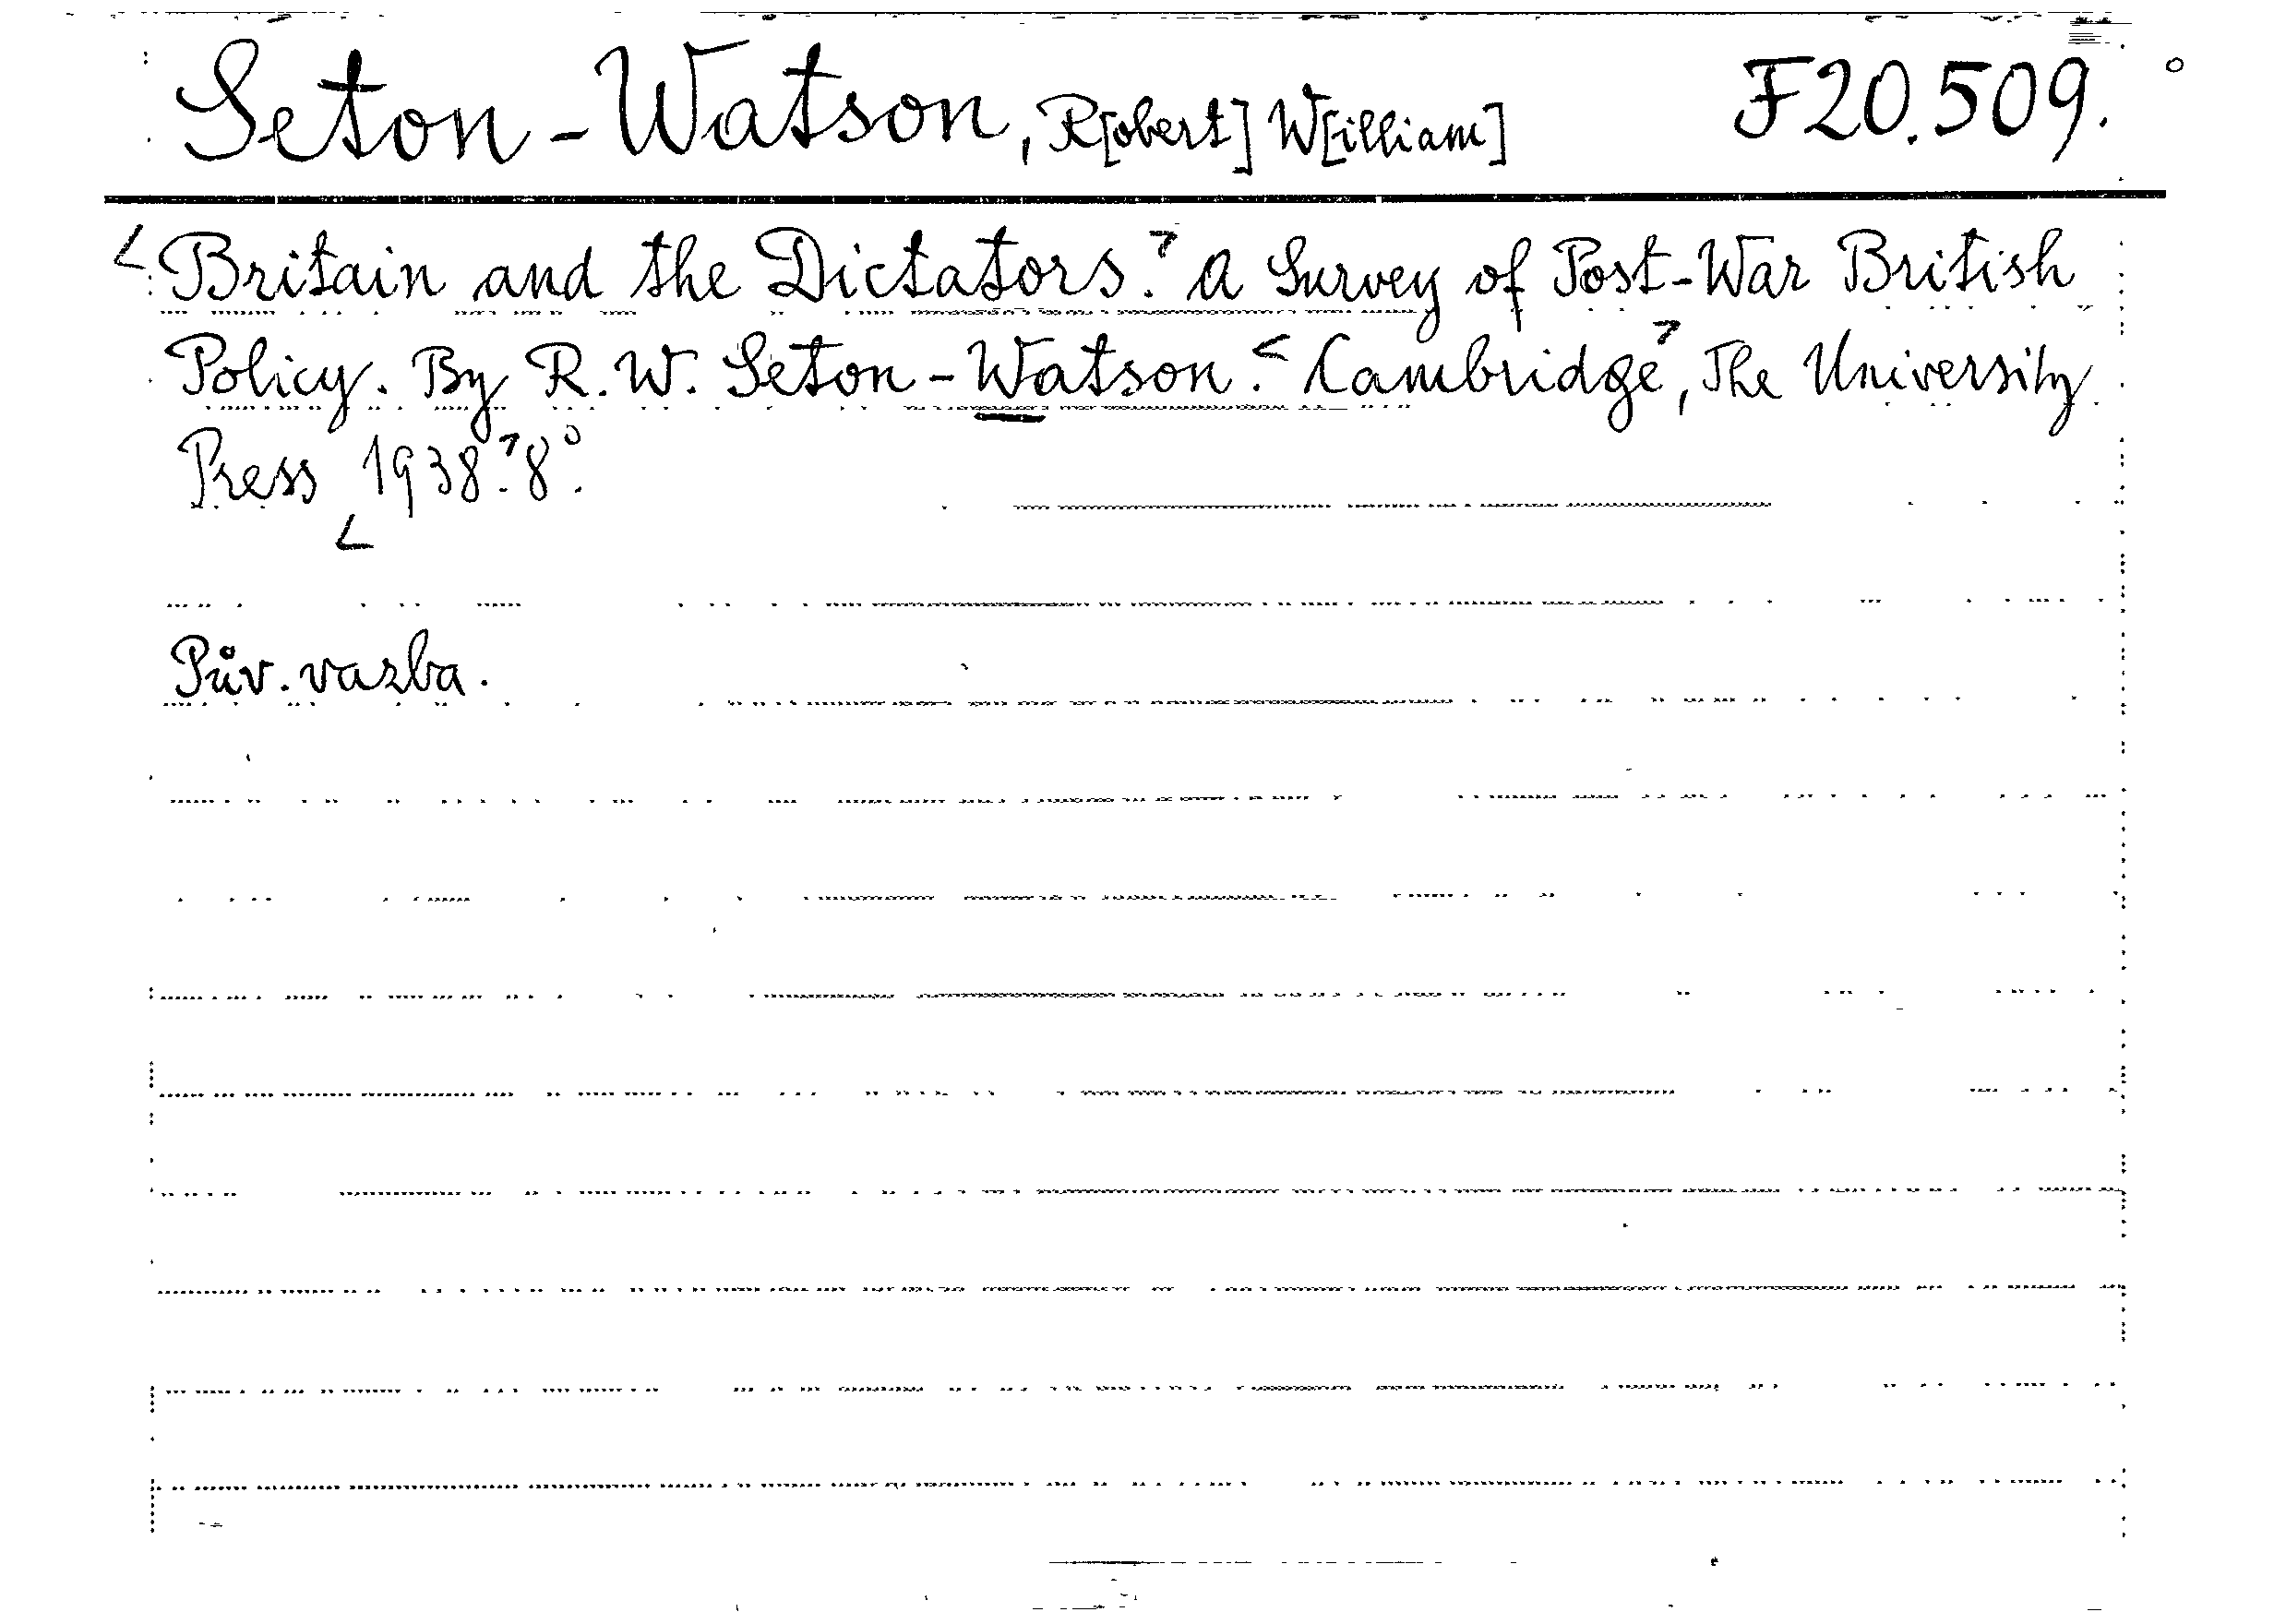 Seton-Watson, R[obert] W[illiam] F20.509.
Britain and the Dictators. A Survey of Post-War British
Policy. By R.W. Seton-Watson. Cambridge, The University
Press 1938. 8°.
Pův. vazba.